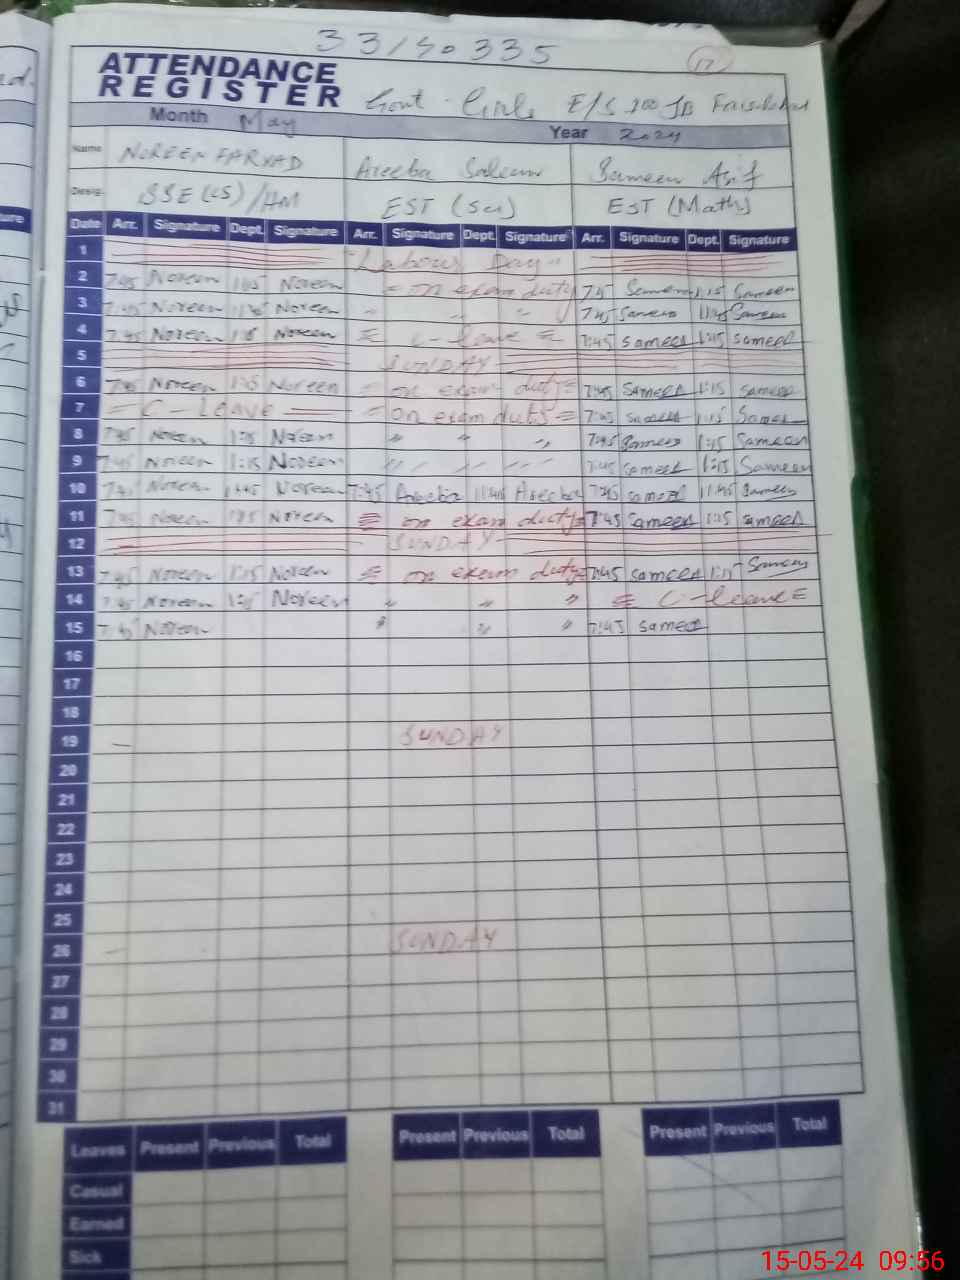 33140335
17
ATTENDANCE
REGISTER
Govt. Girls E/S 100 JB Faisalabad
Month May Year 2024
Name NOREEN FARYAD Areeba Saleem Sameen Asif
Desig. SSE (CS) /HM EST (Sci) EST (Math)
Date Arr. Signature Dept. Signature Arr. Signature Dept. Signature Arr. Signature Dept. Signature
1 Labour Day
2 7:45 Noreen 1:15 Noreen = on exam duty 7:45 Sameen 1:15 Sameen
3 7:45 Noreen 11:45 Noreen " " " 7:45 Sameen 11:45 Sameen
4 7:45 Noreen Noreen = C-leave = 7:45 Sameen 1:15 Sameen
5 SUNDAY
6 7:45 Noreen 1:15 Noreen = on exam duty = 7:45 Sameen 1:15 Sameen
7 = C-Leave = = on exam duty = 7:45 Sameen 1:15 Sameen
8 7:45 Noreen 1:15 Noreen " " " 7:45 Sameen 1:15 Sameen
9 7:45 Noreen 1:15 Noreen " " " 7:45 Sameen 1:15 Sameen
10 7:45 Noreen 11:45 Noreen 7:45 Areeba 11:45 Areeba 7:45 Sameen 11:45 Sameen
11 7:45 Noreen 1:15 Noreen = on exam duty = 7:45 Sameen 1:15 Sameen
12 SUNDAY
13 7:45 Noreen 1:15 Noreen = on exam duty = 7:45 Sameen 1:15 Sameen
14 7:45 Noreen 1:15 Noreen " " " = C-leave =
15 7:45 Noreen " " " 7:45 Sameen
16
17
18
19 SUNDAY
20
21
22
23
24
25
26 SUNDAY
27
28
29
30
31
Leaves Present Previous Total Present Previous Total Present Previous Total
Casual
Earned
Sick
15-05-24 09:56